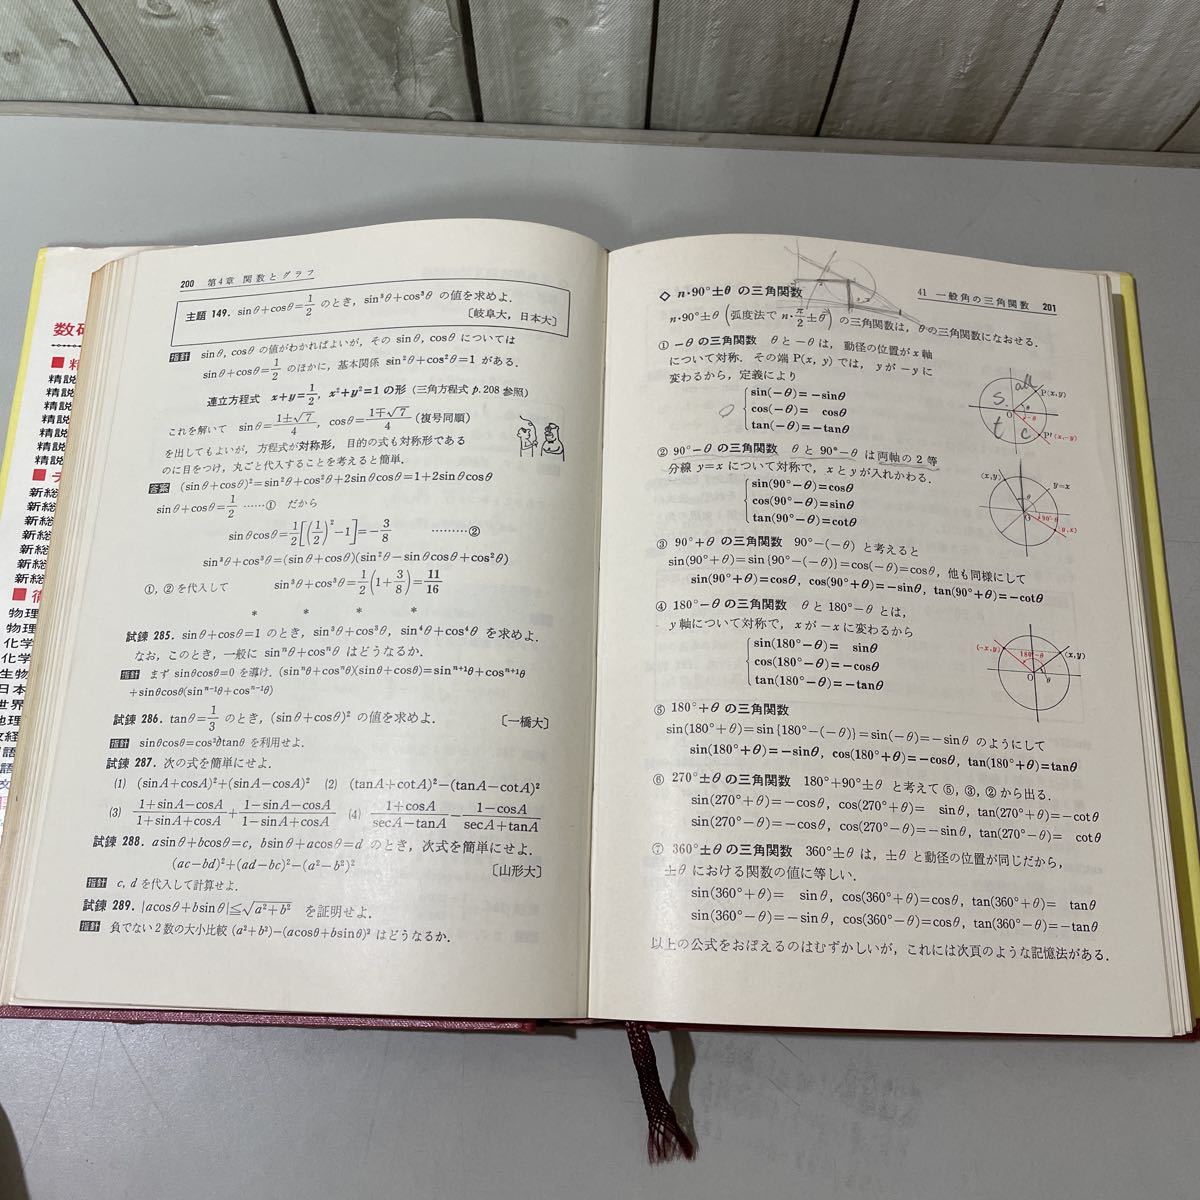 数研
精説
精説
精説
精説
精説
精説
精説
新総
新総
新総
新総
新総
新総
新総
物理
物理
化学
化学
生物
日本
世界
地理
200 第4章 関数とグラフ
主題 149. sinθ+cosθ=1/2 のとき, sin³θ+cos³θ の値を求めよ.
〔岐阜大, 日本大〕
指針 sinθ, cosθ の値がわかればよいが, その sinθ, cosθ については
sinθ+cosθ=1/2 のほかに, 基本関係 sin²θ+cos²θ=1 がある.
連立方程式 x+y=1/2, x²+y²=1 の形 (三角方程式 p.208 参照)
これを解いて sinθ=(1±√7)/4, cosθ=(1∓√7)/4 (複号同順)
を出してもよいが, 方程式が対称形, 目的の式も対称形である
のに目をつけ, 丸ごと代入することを考えると簡単.
答案 (sinθ+cosθ)²=sin²θ+cos²θ+2sinθcosθ=1+2sinθcosθ
sinθ+cosθ=1/2 ……① だから
sinθcosθ=1/2[(1/2)²-1]=-3/8 ………②
sin³θ+cos³θ=(sinθ+cosθ)(sin²θ-sinθcosθ+cos²θ)
①, ②を代入して sin³θ+cos³θ=1/2(1+3/8)=11/16
* * * *
試錬 285. sinθ+cosθ=1 のとき, sin³θ+cos³θ, sin⁴θ+cos⁴θ を求めよ.
なお, このとき, 一般に sinⁿθ+cosⁿθ はどうなるか.
指針 まず sinθcosθ=0 を導け. (sinⁿθ+cosⁿθ)(sinθ+cosθ)=sinⁿ⁺¹θ+cosⁿ⁺¹θ
+sinθcosθ(sinⁿ⁻¹θ+cosⁿ⁻¹θ)
試錬 286. tanθ=1/3 のとき, (sinθ+cosθ)² の値を求めよ. 〔一橋大〕
指針 sinθcosθ=cos²θtanθ を利用せよ.
試錬 287. 次の式を簡単にせよ.
(1) (sinA+cosA)²+(sinA-cosA)² (2) (tanA+cotA)²-(tanA-cotA)²
(3) (1+sinA-cosA)/(1+sinA+cosA)+(1-sinA-cosA)/(1-sinA+cosA) (4) (1+cosA)/(secA-tanA)-(1-cosA)/(secA+tanA)
試錬 288. asinθ+bcosθ=c, bsinθ+acosθ=d のとき, 次式を簡単にせよ.
(ac-bd)²+(ad-bc)²-(a²-b²)² 〔山形大〕
指針 c, d を代入して計算せよ.
試錬 289. |acosθ+bsinθ|≦√(a²+b²) を証明せよ.
指針 負でない2数の大小比較 (a²+b²)-(acosθ+bsinθ)² はどうなるか.
41 一般角の三角関数 201
◇ n・90°±θ の三角関数
n・90°±θ (弧度法で n・π/2±θ) の三角関数は, θの三角関数になおせる.
① -θ の三角関数 θ と -θ は, 動径の位置が x 軸
について対称. その端 P(x, y) では, y が -y に
変わるから, 定義により
sin(-θ)=-sinθ
cos(-θ)= cosθ
tan(-θ)=-tanθ
all
S
t
c
P(x,y)
θ
O
-θ
P'(x,-y)
② 90°-θ の三角関数 θ と 90°-θ は両軸の2等
分線 y=x について対称で, x と y が入れかわる.
sin(90°-θ)=cosθ
cos(90°-θ)=sinθ
tan(90°-θ)=cotθ
(x,y)
y=x
θ
O
90°-θ
(y,x)
③ 90°+θ の三角関数 90°-(-θ) と考えると
sin(90°+θ)=sin{90°-(-θ)}=cos(-θ)=cosθ, 他も同様にして
sin(90°+θ)=cosθ, cos(90°+θ)=-sinθ, tan(90°+θ)=-cotθ
④ 180°-θ の三角関数 θ と 180°-θ とは,
y 軸について対称で, x が -x に変わるから
sin(180°-θ)= sinθ
cos(180°-θ)=-cosθ
tan(180°-θ)=-tanθ
(-x,y)
180°-θ
(x,y)
O
θ
⑤ 180°+θ の三角関数
sin(180°+θ)=sin{180°-(-θ)}=sin(-θ)=-sinθ のようにして
sin(180°+θ)=-sinθ, cos(180°+θ)=-cosθ, tan(180°+θ)=tanθ
⑥ 270°±θ の三角関数 180°+90°±θ と考えて ⑤, ③, ② から出る.
sin(270°+θ)=-cosθ, cos(270°+θ)= sinθ, tan(270°+θ)=-cotθ
sin(270°-θ)=-cosθ, cos(270°-θ)=-sinθ, tan(270°-θ)= cotθ
⑦ 360°±θ の三角関数 360°±θ は, ±θ と動径の位置が同じだから,
±θ における関数の値に等しい.
sin(360°+θ)= sinθ, cos(360°+θ)=cosθ, tan(360°+θ)= tanθ
sin(360°-θ)=-sinθ, cos(360°-θ)=cosθ, tan(360°-θ)=-tanθ
以上の公式をおぼえるのはむずかしいが, これには次頁のような記憶法がある.